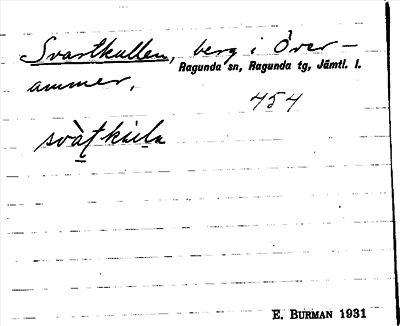 Svartkullen, berg i Över-
Ragunda sn, Ragunda tg, Jämtl. l.
ammer.
454
E. BURMAN 1931